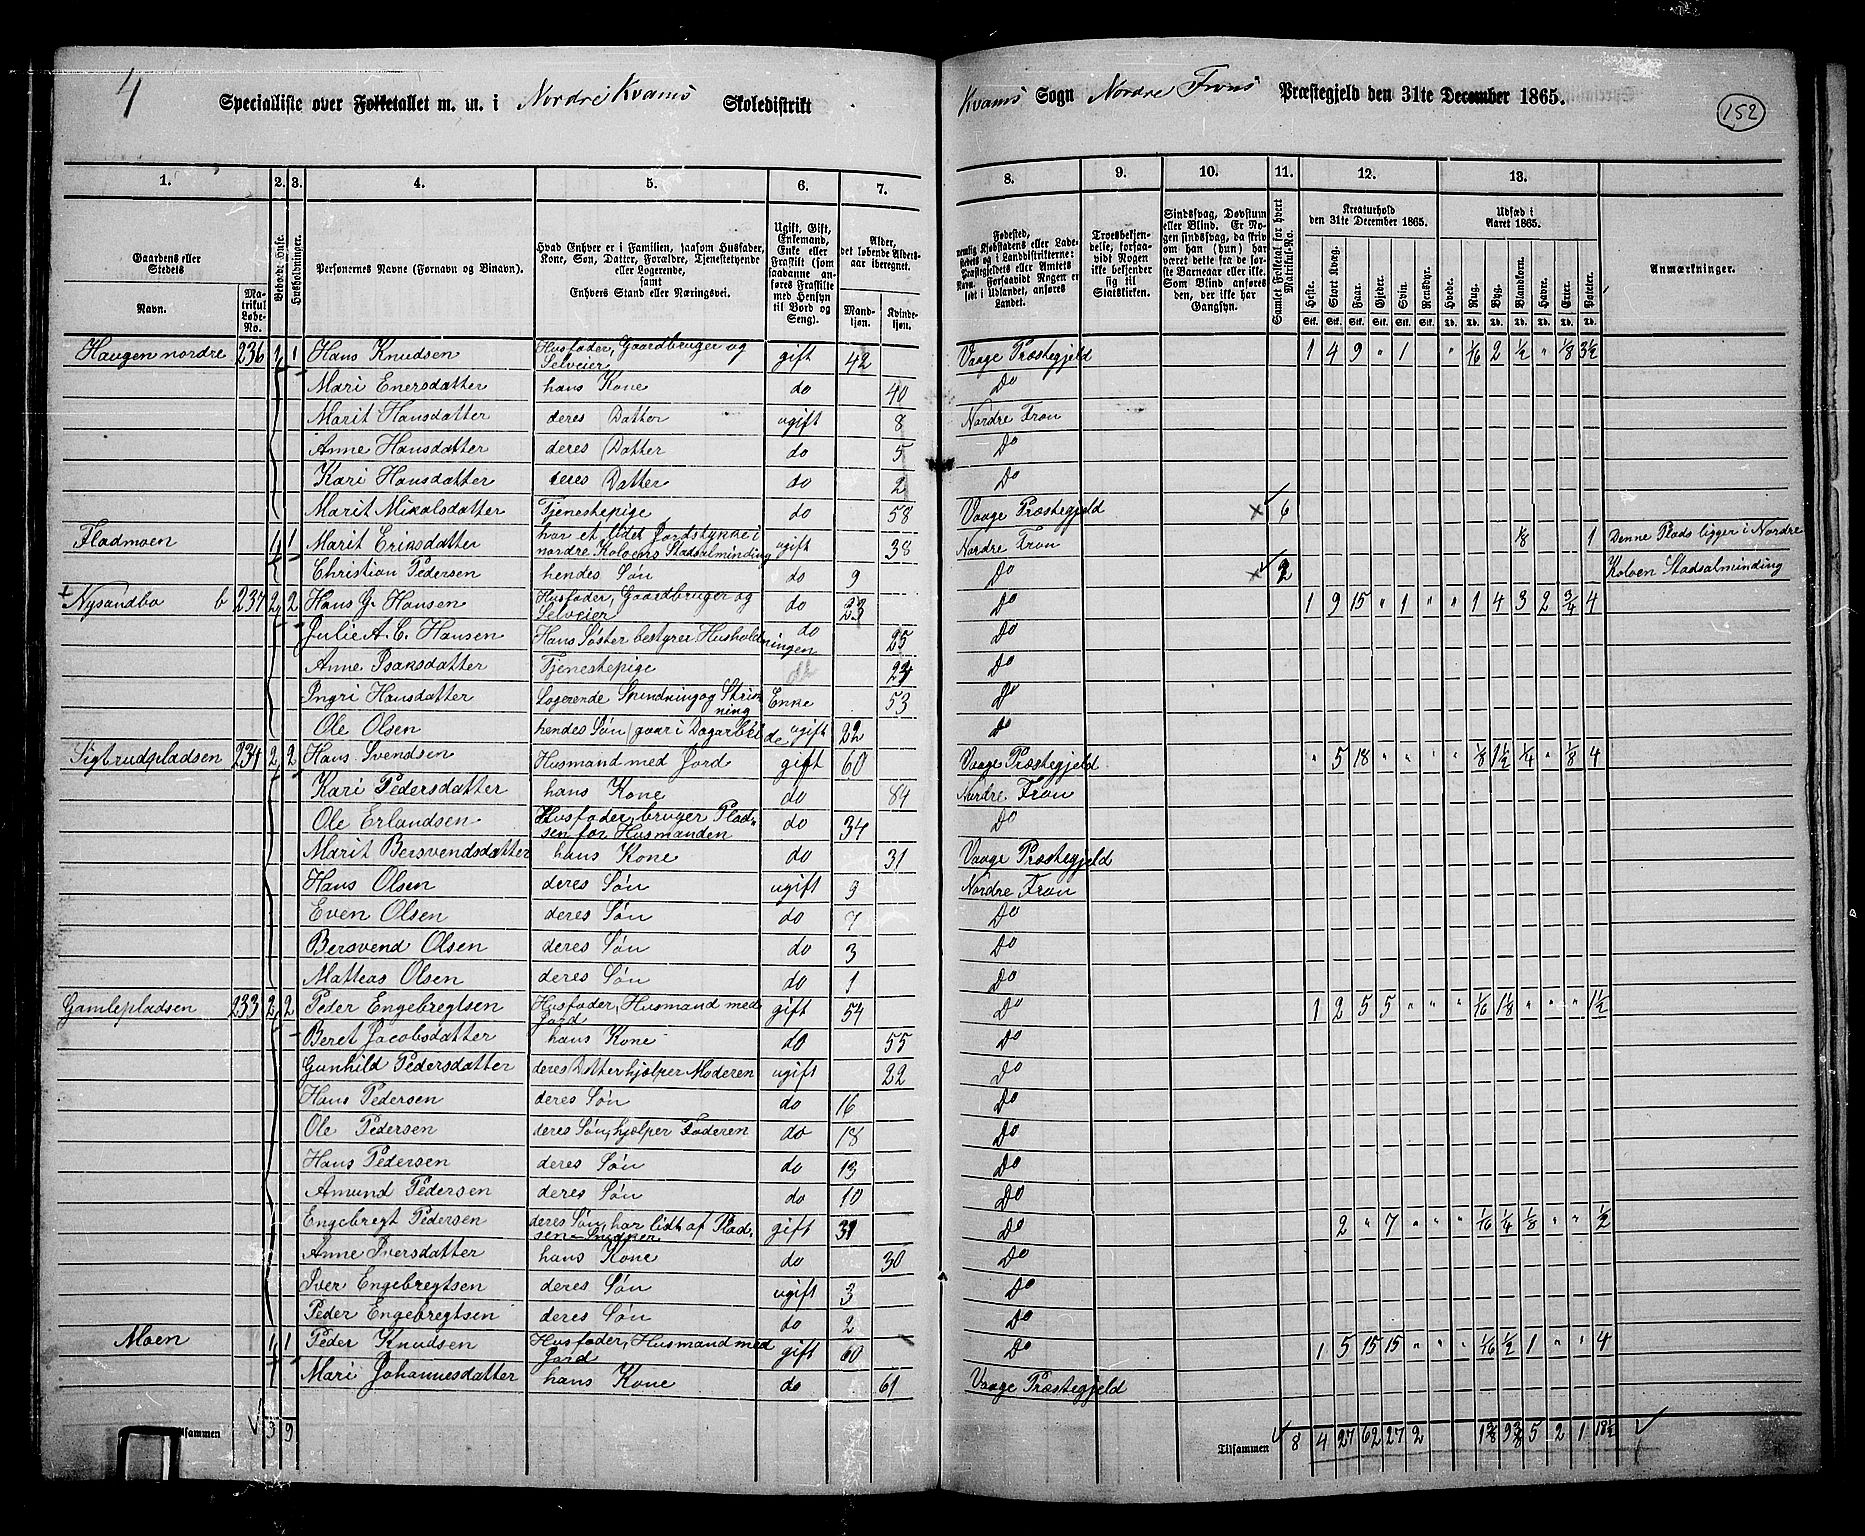 4 Specialliste over Folketallet m. m. i Nordre Kvams Skoledistrikt Kvams Sogn Nordre Frons Præstegjeld den 31te December 1865. 152
1. 2. 3. 4. 5. 6. 7. 8. 9. 10. 11. 12. 13.
Gaardens eller Stedets
Navn.
Matrikul Løbe-No.
Beboede Huse.
Husholdninger.
Personernes Navne (Fornavn og Binavn).
Hvad Enhver er i Familien, saasom Husfader, Kone, Søn, Datter, Forældre, Tjenestetyende eller Logerende, samt Enhvers Stand eller Næringsvei.
Ugift, Gift, Enkemand, Enke eller Fraskilt (som saadanne anføres Fraskilte med Hensyn til Bord og Seng).
Alder, det løbende Aldersaar iberegnet.
Mandkjøn. Kvindekjøn.
Fødested, nemlig Kjøbstadens eller Ladestedets eller i Landdistrikterne: Præstegjeldets eller Amtets Navn. Forsaavidt Nogen er født i Udlandet, anføres Landet.
Troesbekjendelse, forsaavidt Nogen ikke bekjender sig til Statskirken.
Sindssvag, Døvstum eller Blind. Er Nogen sindssvag, da skriv om han (hun) har været dette fra de første Barneaar eller ikke. Som Blind anføres den, der ikke har Gangsyn.
Samlet Folketal for hvert Matrikul-No.
Kreaturhold den 31te December 1865.
Heste. Stort Kvæg. Faar. Gjeder. Svin. Rensdyr.
Udsæd i Aaret 1865.
Hvede. Rug. Byg. Blandkorn. Havre. Erter. Poteter.
Stk. Stk. Stk. Stk. Stk. Stk. Td. Td. Td. Td. Td. Td. Td.
Anmærkninger.
Haugen nordre 236 1 1 Hans Knudsen Husfader, Gaardbruger og Selveier gift 42 Vaage Præstegjeld 1 4 9 " 1 " 1/16 2 1/2 " 1/8 3 1/2
Mari Enersdatter hans Kone do 40 Do
Marit Hansdatter deres Datter ugift 8 Nordre Fron
Anne Hansdatter deres Datter do 5 Do
Kari Hansdatter deres Datter do 2 Do
Marit Mikalsdatter Tjenestepige do 58 Vaage Præstegjeld × 6
Fladmoen 1 1 Marit Eriksdatter har et lidet Jordstykke i nordre Kolvens Stadsalminding ugift 38 Nordre Fron 1/8 1 Denne Plads ligger i Nordre
Christian Pedersen hendes Søn do 9 Do × 2 Kolven Stadsalminding
Nysandbo b 237 2 2 Hans G. Hansen Husfader, Gaardbruger og Selveier do 23 Do 1 9 15 " 1 " " 1 4 3 2 3/4 4
Julie A. C. Hansen Hans Søster bestyrer Husholdningen do 25 Do
Anne Isaksdatter Tjenestepige do 24 Do
Ingri Hansdatter Logerende Spindning og Enke 53 Do
Ole Olsen hendes Søn gaar i Dagarbeide ugift 22 Do
Sigtrudpladsen 234 2 2 Hans Svendsen Husmand med Jord gift 60 Vaage Præstegjeld " 5 18 " " " " 1/8 1 1/2 1/4 " 1/8 4
Kari Pedersdatter hans Kone do 84 Nordre Fron
Ole Erlandsen Husfader, bruger Pladsen for Husmanden do 34 Do
Marit Bersvendsdatter hans Kone do 31 Vaage Præstegjeld
Hans Olsen deres Søn ugift 9 Nordre Fron
Even Olsen deres Søn do 7 Do
Bersvend Olsen deres Søn do 3 Do
Matteas Olsen deres Søn do 1 Do
Gamlepladsen 233 2 2 Peder Engebregtsen Husfader, Husmand med Jord gift 54 Do 1 2 5 5 " " " 1/16 1 1/8 " " " 1 1/2
Beret Jacobsdatter hans Kone do 55 Do
Gunhild Pedersdatter deres Datter hjælper Moderen ugift 22 Do
Hans Pedersen deres Søn do 16 Do
Ole Pedersen deres Søn, hjælper Faderen do 18 Do
Hans Pedersen deres Søn do 13 Do
Amund Pedersen deres Søn do 10 Do
Engebregt Pedersen deres Søn, har lidt af Pladsen Snidker gift 31 Do 2 " 7 " " " 1/16 1/4 1/8 " " 1/2
Anne Iversdatter hans Kone do 30 Do
Iver Engebregtsen deres Søn ugift 3 Do
Peder Engebregtsen deres Søn do 2 Do
Moen 1 1 Peder Knudsen Husfader, Husmand med Jord gift 60 Do 1 5 15 15 " " " 1/16 1/2 1 " " 4
Mari Johannesdatter hans Kone do 61 Vaage Præstegjeld
Tilsammen 9 Tilsammen 8 4 27 62 27 2 1 3/8 9 3/8 5 2 1 18 1/2